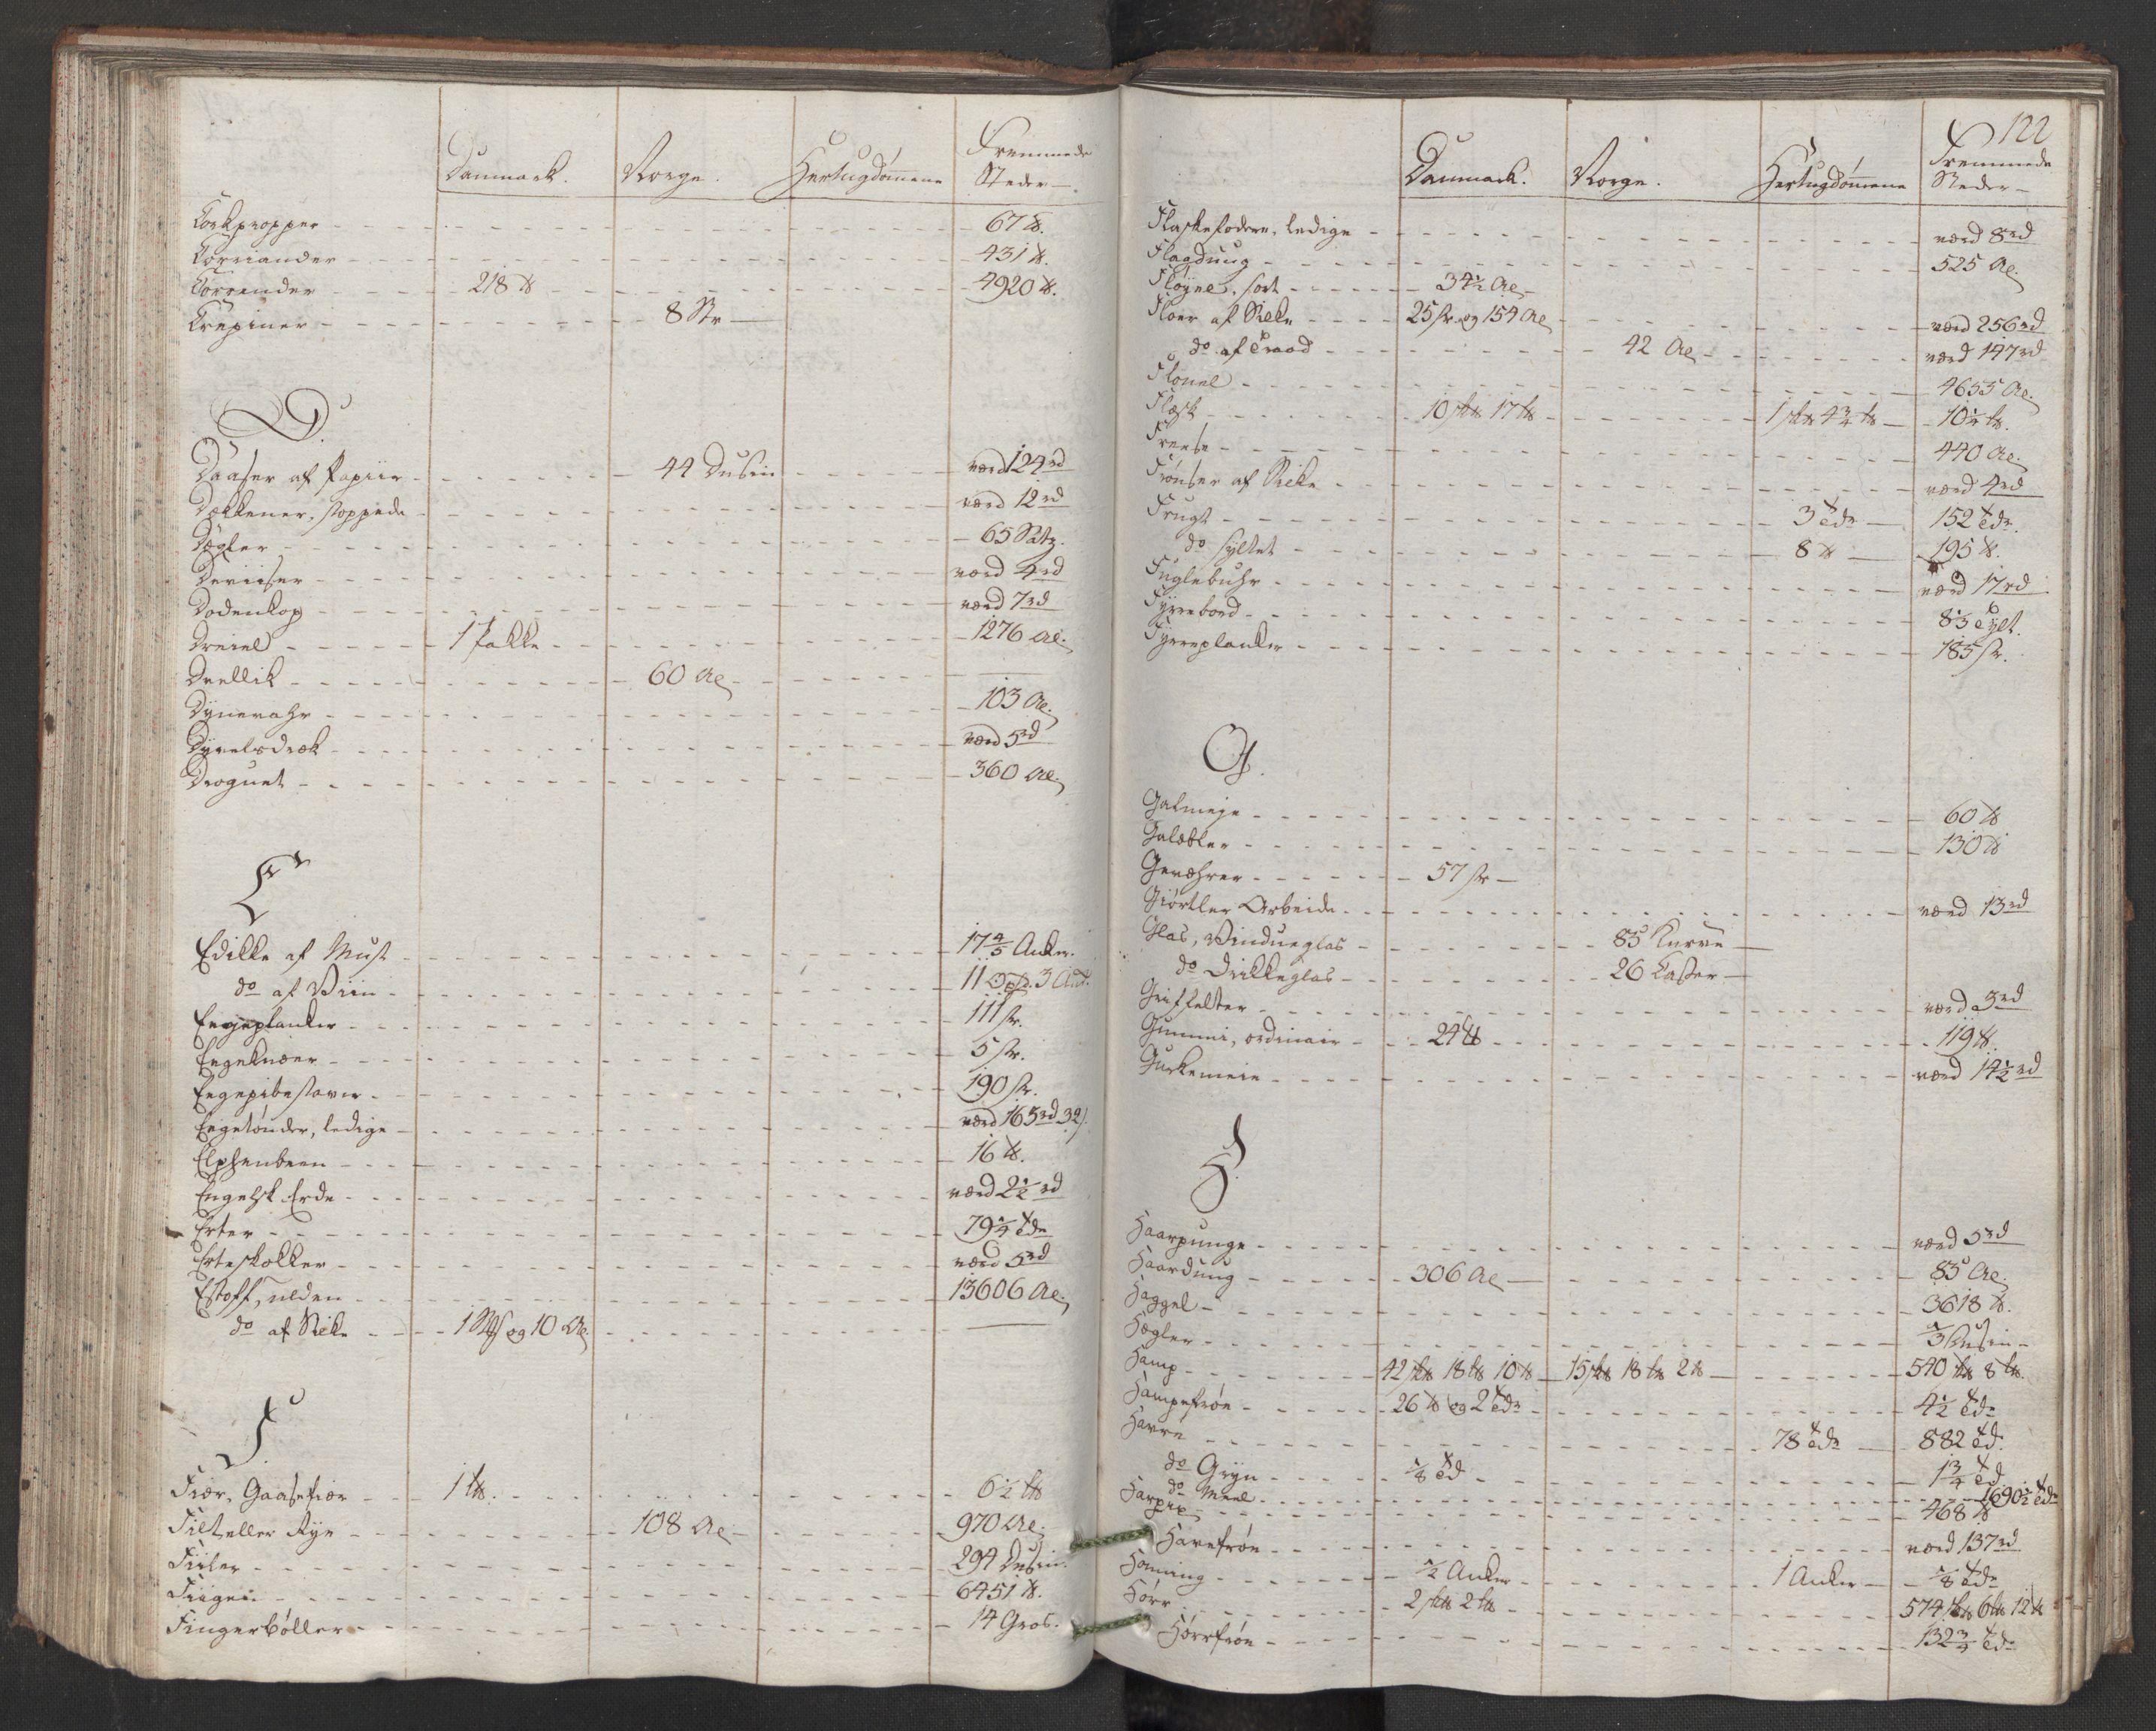 Danmark. Norge. Hertugdømene Fremmede Steder
Korkpropper 67 ℔.
Korriander 431 ℔.
Korrender 218 ℔ 4920 ℔.
Krepiner 8 Str
D.
Daaser af Papiir 44 Dusin værd 124 rd
Dækkener, stoppede værd 12 rd
Dægler 65 Satz.
Deviiser værd 4 rd
Dodenkop værd 7 rd
Dreiel 1 Pakke 1276 Al.
Drellik 60 Al
Dynevahr 103 Al.
Dyvelsdræk værd 5 rd
Droguet 360 Al.
E
Edikke af Must 17 4/5 Anker.
do af Viin 11 Oxh. 3 Ank.
Eegeplanker 111 st.
Eegeknæer 5 st.
Eegepibestaver 190 st.
Eegetønder, ledige værd 165 rd 32 s.
Elphenbeen 16 ℔.
Engelsk Erde værd 2 1/2 rd
Erter 79 1/4 Tdr
Erteskokker værd 53 rd
Estoff, ulden 13606 Al.
do af Silke 1 St og 10 Al
F.
Fiær, Gaasefiær 1 L℔. 6 1/2 L℔
Filt eller Rye 108 Al 970 Al.
Fiiler 294 Dusin.
Fiigen 6451 ℔.
Fingerbøller 14 Gros.
122
Danmark. Norge. Hertugdømmene Fremmede Steder
Flaskefodere, ledige værd 8 rd
Flagduug 525 Al.
Fløyel, sort 34 1/2 Al
Floer af Silke 25 st. og 154 Al værd 256 rd
do af Traad 42 Al værd 147 rd
Flonel 4655 Al.
Flesk 10 sk℔ 17 L℔ 1 sk℔ 4 3/4 L℔ 10 1/4 L℔.
Freese 440 Al.
Frønser af Silke værd 4 rd
Frugt 3 Tdr 152 Tdr.
do syltet 8 ℔ 195 ℔.
Fuglebuhr værd 17 rd
Fyrrebord 85 Tylt.
Fyrreplanker 185 st.
G.
Galmeye 60 ℔
Galæbler 130 ℔
Geværer 57 st
Giørtler Arbeide værd 13 rd
Glas, Vindueglas 85 Kurve
do Drikkeglas 26 Kasser
Griffelter værd 3 rd
Gummi, ordinair 24 ℔ 119 ℔.
Gurkemeie værd 14 1/2 rd
H.
Haarpunge værd 5 rd
Haardúúg 306 Al 85 Al.
Haggel 3618 ℔.
Hægler 1/3 Dusin
Hamp 42 sk℔ 18 L℔ 10 ℔ 15 sk℔ 18 L℔ 2 ℔ 540 sk℔ 8 L℔.
Hampefrøe 26 ℔ og 2 Tdr 4 1/2 Tdr
Havre 78 Tdr 882 Td.
do Gryn 1/8 Td 1 3/4 Td
do Meel 1690 1/2 Tdr
Harpix 468 ℔
Havefrøe værd 137 rd
Honning 1/2 Anker 1 Anker 1/8 Tdr
Hørr 2 sk℔ 2 L℔ 574 sk℔ 6 L℔ 12 ℔
Hørrfrøe 132 3/4 Tdr